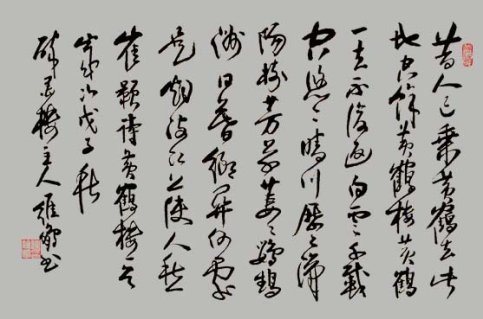 昔人已乘黄鶴去此
地空餘黄鶴樓黄鶴
一去不復返白雲千載
空悠々晴川歷々漢
陽樹芳草萋々鸚鵡
洲日暮鄉關何處
是煙波江上使人愁
崔顥詩黄鶴樓一首
歲次戊子秋
樓主人書